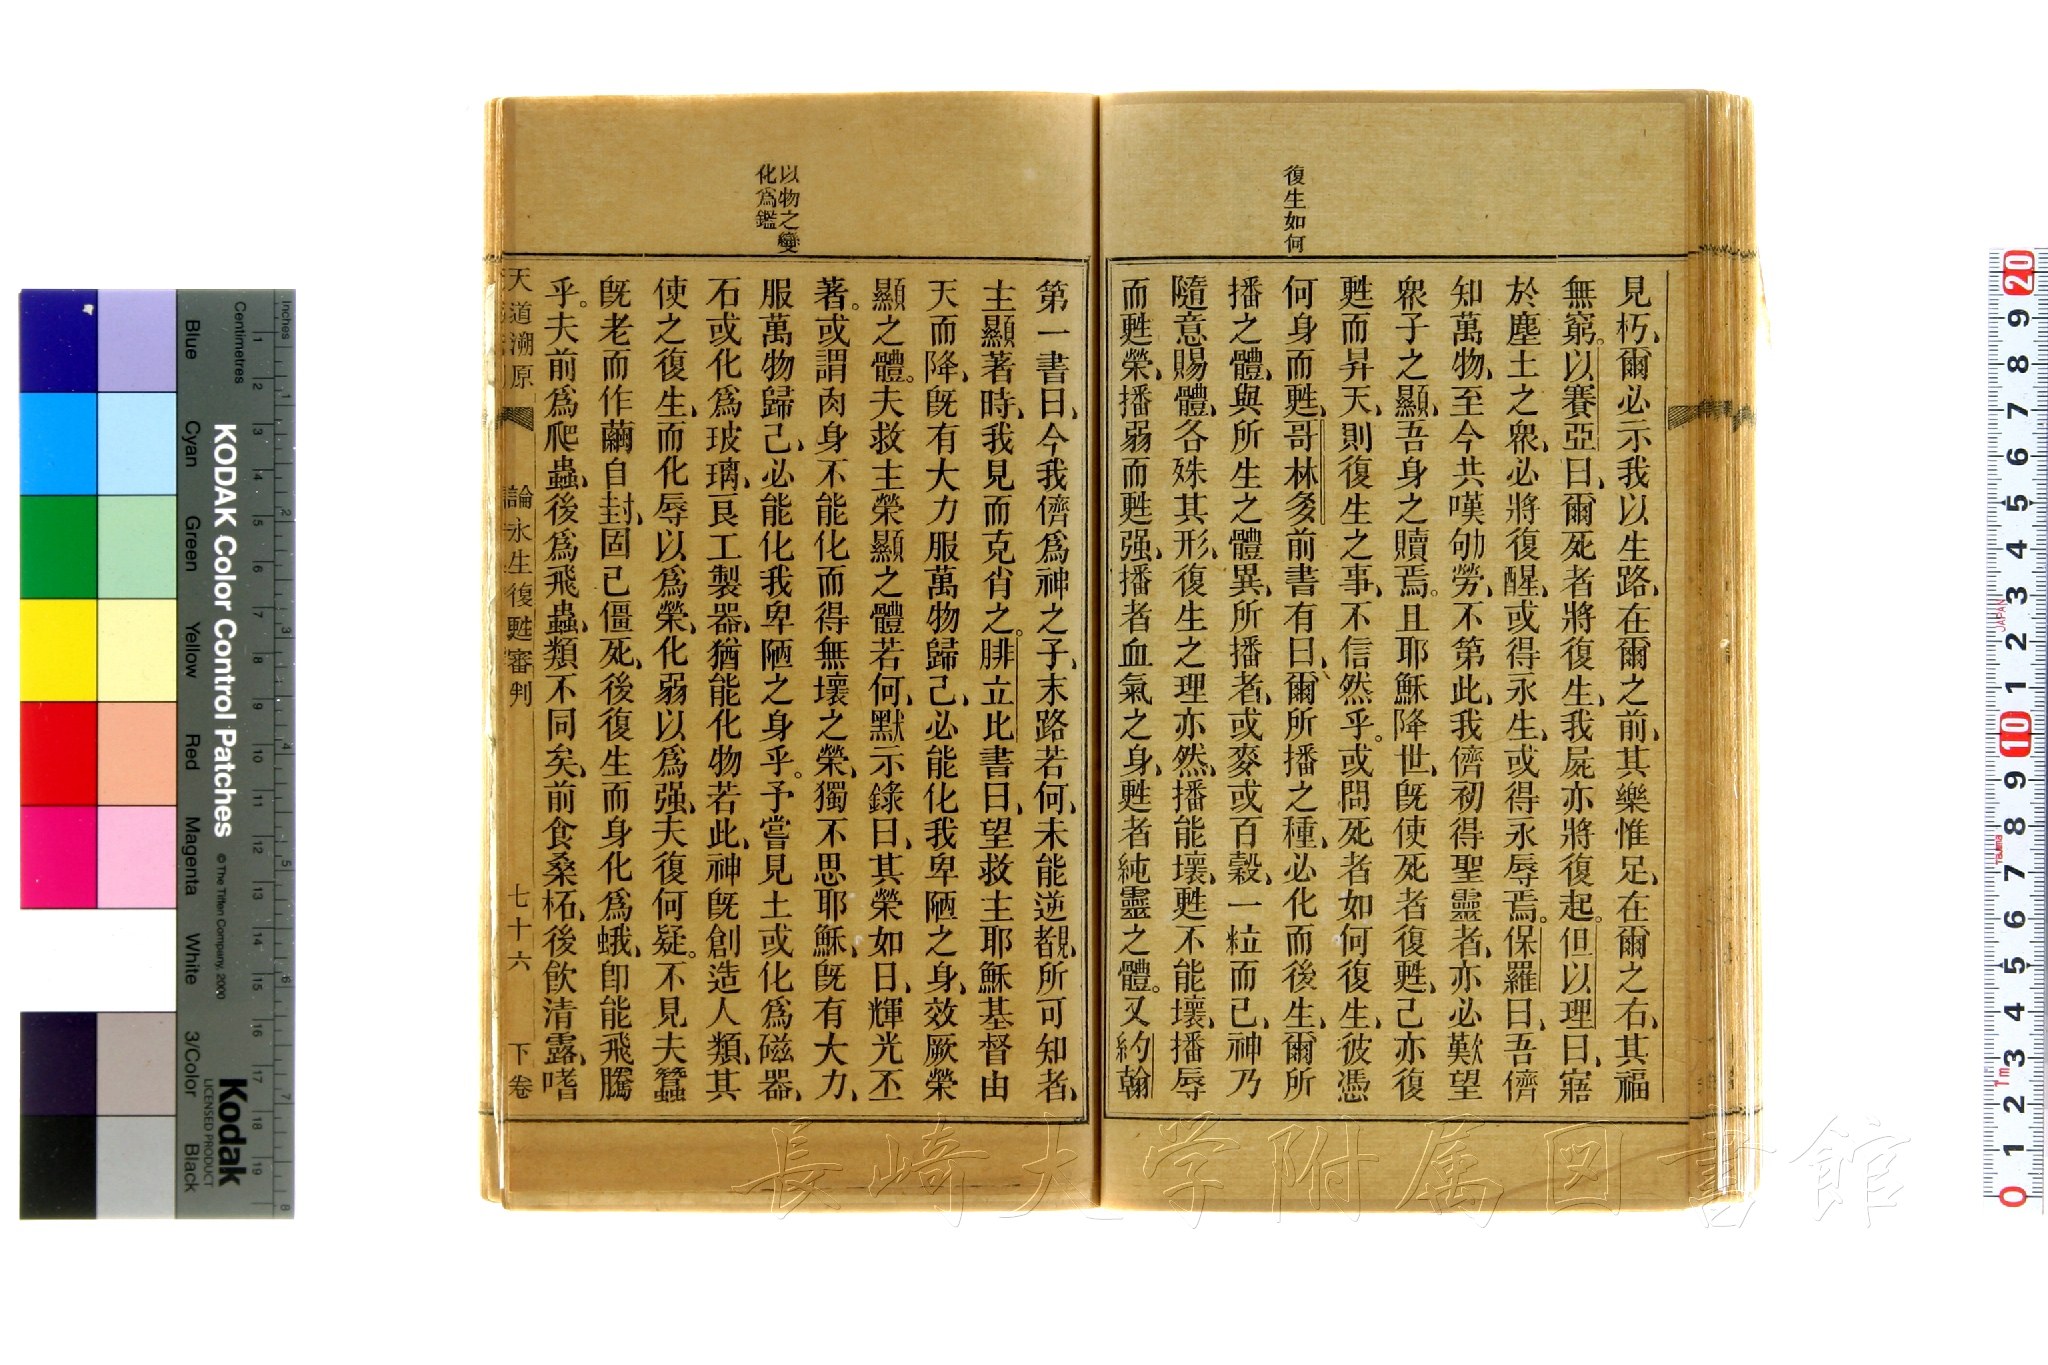 復生如何
見朽、爾必示我以生路、在爾之前、其樂惟足、在爾之右、其福
無窮。以賽亞曰、爾死者將復生、我屍亦將復起。但以理曰、寤
於塵土之衆、必將復醒、或得永生、或得永辱焉。保羅曰、吾儕
知萬物、至今共嘆劬勞、不第此、我儕初得聖靈者、亦必歎望
衆子之顯、吾身之贖焉。且耶穌降世、旣使死者復甦、己亦復
甦而昇天、則復生之事、不信然乎。或問死者如何復生、彼憑
何身而甦、哥林多前書有曰、爾所播之種、必化而後生、爾所
播之體、與所生之體異、所播者、或麥或百穀、一粒而已、神乃
隨意賜體、各殊其形、復生之理亦然、播能壞、甦不能壞、播辱
而甦榮、播弱而甦强、播者血氣之身、甦者純靈之體。又約翰
以物之變
化爲鑑
第一書曰、今我儕爲神之子、末路若何、未能逆覩、所可知者、
主顯著時、我見而克肖之。腓立比書曰、望救主耶穌基督由
天而降、旣有大力服萬物歸己、必能化我卑陋之身、效厥榮
顯之體。夫救主榮顯之體若何、默示錄曰、其榮如日、輝光丕
著。或謂肉身不能化而得無壞之榮、獨不思耶穌、旣有大力、
服萬物歸己、必能化我卑陋之身乎。予嘗見土或化爲磁器、
石或化爲玻璃、良工製器、猶能化物若此、神旣創造人類、其
使之復生、而化辱以爲榮、化弱以爲强、夫復何疑。不見夫蠶
旣老而作繭自封、固已僵死、後復生而身化爲蛾、卽能飛騰
乎。夫前爲爬蟲、後爲飛蟲、類不同矣、前食桑柘、後飮清露、嗜
天道溯原
論永生復甦審判
七十六
下卷
長崎大学附属図書館
KODAK Color Control Patches
© The Tiffen Company, 2000
Kodak
LICENSED PRODUCT
Inches
Centimetres
Blue
Cyan
Green
Yellow
Red
Magenta
White
3/Color
Black
JAPAN
Tajima